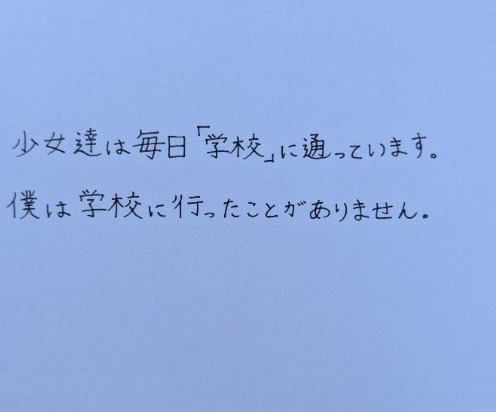 少女達は毎日「学校」に通っています。
僕は学校に行ったことがありません。